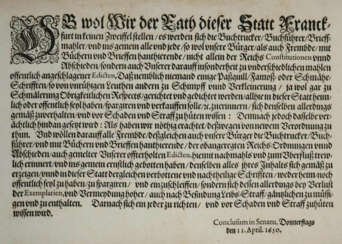 OB wol Wir der Rath dieser Statt Franck-
furt in keinen Zweiffel stellen / es werden sich die Buchtrucker / Buchführer / Brieff-
mahler / vnd ins gemein alle vnd jede / so wol vnsere Bürger / als auch Frembde / mit
Büchern vnd Brieffen handthierende / nicht allein der Reichs Constitutionen vnnd
Abschieden / sondern auch Vnserer darauff insonderheit zu vnderschiedlichen mahlen
offentlich angeschlagener Edicten, Daß nemlich niemand einige Pasquill / Famoß- oder Schmähe-
Schrifften / so von vnrühigen Leuthen andern zu Schimpff vnnd Verkleinerung / ja wol gar zu
Schmälerung Obrigkeitlichen Respects / gerichtet vnd gedichtet werden / allhie in dieser Statt heim-
lich oder offentlich feyl haben / spargiren vnd verkauffen solle / erinnern / sich denselben allerdings
gemäß zuverhalten / vnd vor Schaden vnd Straff zuhüten wissen: Demnach jedoch dasselbe ver-
ächtlich hindan gesetzt wird: Als haben wir nöthig erachtet deßwegen von newem Verordnung zu
thun. Vnd wollen darauff alle Frembde / deßgleichen auch vnsere Bürger die Buchtrucker / Buch-
führer / vnd mit Büchern vnd Brieffen handthierende / der obangeregten Reichs-Ordnungen vnnd
Abschieden / auch gemelter Vnserer offterholten Edicten, hiemit nachmahls vnd zum Vberfluß trew-
lich erinnert / vnd ins gemein ernstlich gebotten haben / denselben alles ihres Inhalts sich gemäß zu
erzeigen / vnnd in dieser Statt dergleichen verbottene vnd nachtheilige Schrifften / weder heim noch
offentlich feyl zu haben / zu spargiren / vnd einzuschleiffen / sondern sich dessen allerdings bey Verlust
der Exemplarien, vnd Vermeydung hoher / auch nach Befindung Leibs-Straff / gäntzlichen zu müssi-
gen vnd zu enthalten. Darnach sich ein jeder zu richten / vnd vor Schaden vnd Straff zuhüten
wissen wird.
Conclusum in Senatu, Donnerstags
den 11. April. 1650.